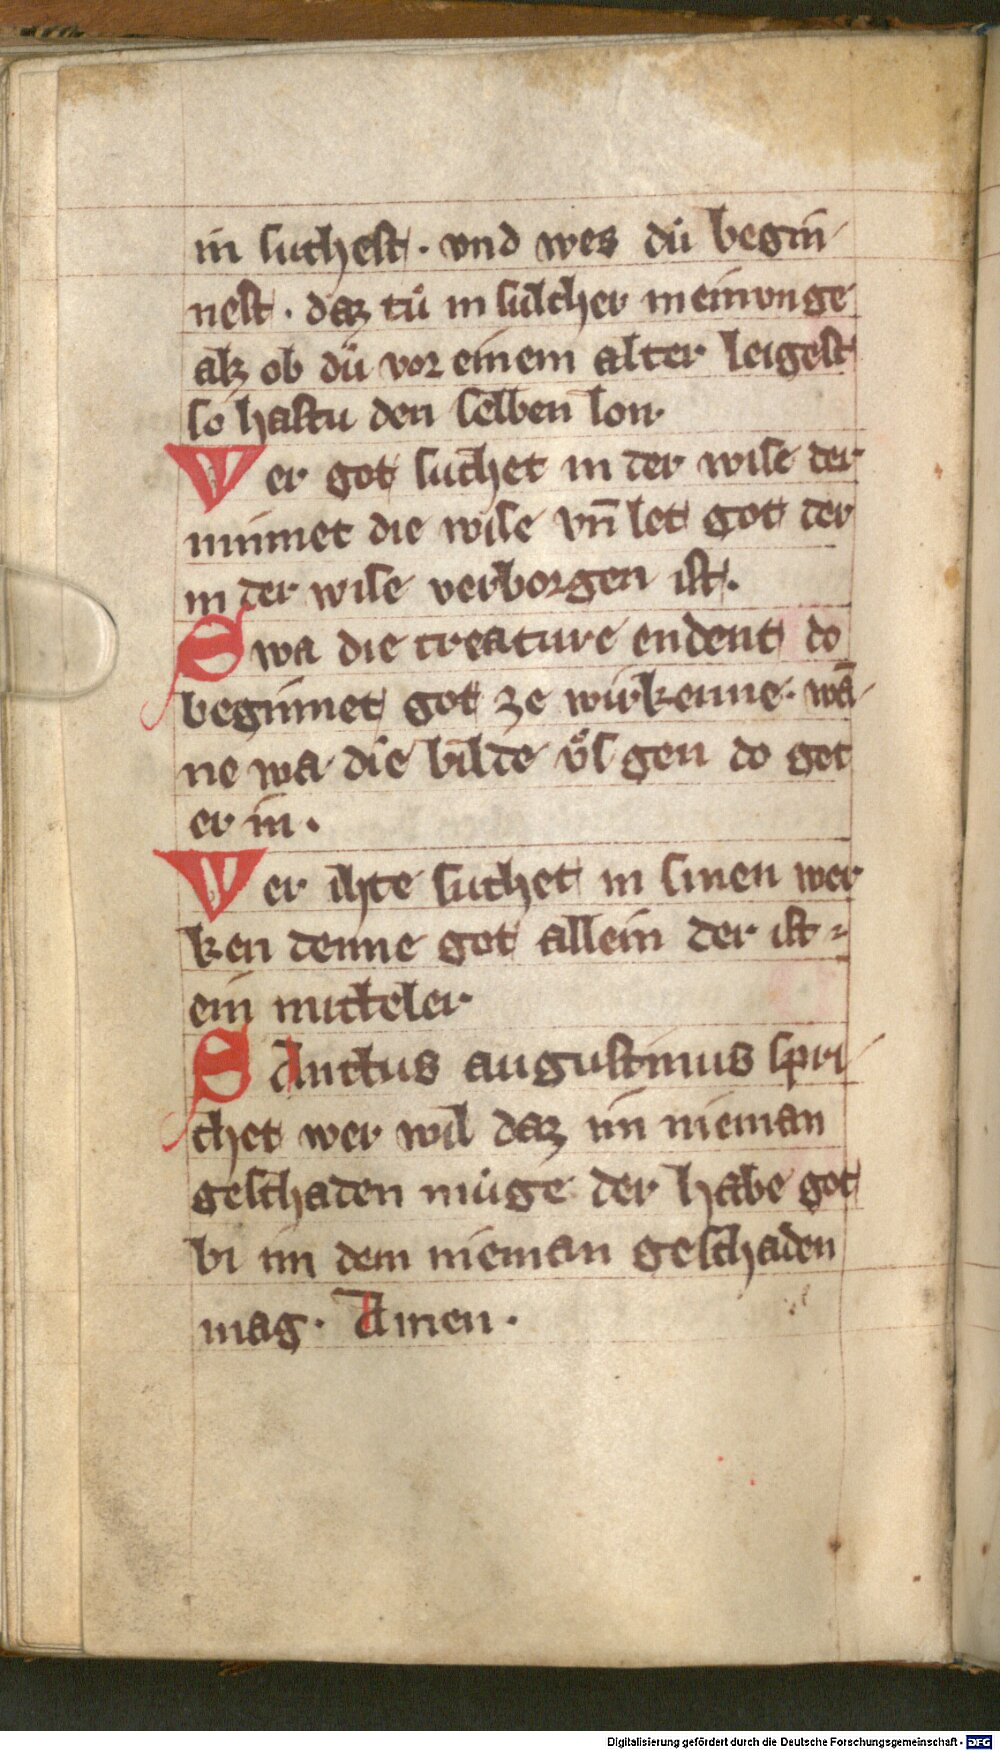 in suchest. vnd wes du̍ begin-
nest. daz tuͦ in sulcher meinunge
alz ob du̍ vor einem alter leigest
so hastu den selben lon.
Wer got suchet in der wise der
minnet die wise vn̄ let got der
in der wise verborgen ist.
Swa die creature endent do
beginnet got ze wirkenne. wā-
ne wa die bilde vͦs gen do get
er in.
Wer ihte suchet in sinen wer
ken denne got allein der ist =
ein mitteler
SAnctus augustinus spri-
chet wer wil daz im nieman
geschaden mu̍ge der habe got
bi im dem nieman geschaden
mag. Amen.
Digitalisierung gefördert durch die Deutsche Forschungsgemeinschaft - DFG